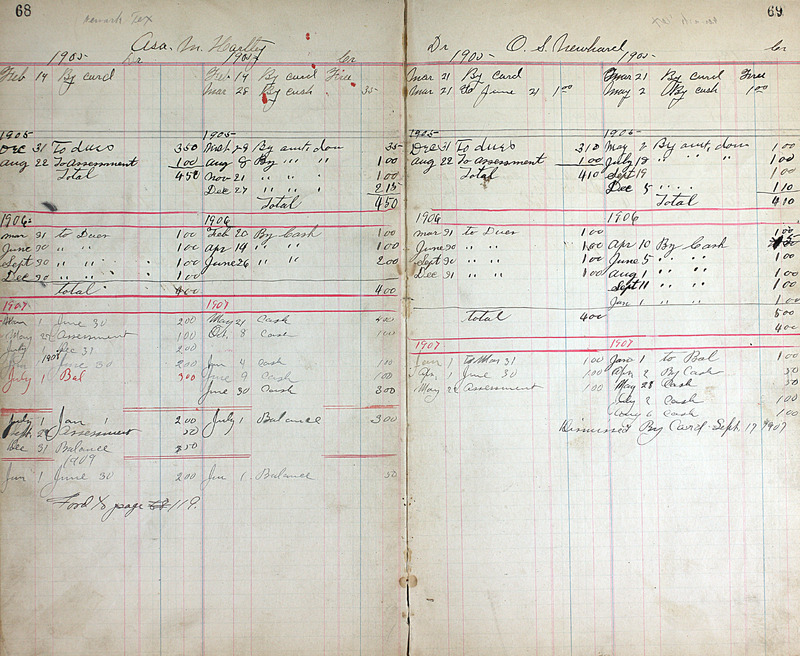 68
Newark Tex
Asa. M. Hartley
1905 Dr 1905 Cr
Feb 14 By card Feb 14 By card Free
Mar 28 By cash 35
1905 1905
Dec 31 To dues 350 Mar 28 By amt. dom 35
Aug 22 To assessment 100 Aug 8 By " " 100
Total 450 Nov 21 " " " 100
Dec 27 " " " 215
Total 450
1906 1906
Mar 31 to Dues 100 Feb 20 By Cash 100
June 30 " " 100 Apr 14 " " 100
Sept 30 " " " 100 June 26 " " 200
Dec 30 " " " 100
Total 400 400
1907 1907
Jan 1 June 30 200 May 21 Cash 400
May 25 Assessment 100 Oct. 8 Cash 100
July 1 Dec 31 200
1908
June 30 200 Jan 4 Cash 110
July 1 Bal 300 June 9 Cash 100
June 30 Cash 300
July 1 Jan 1 200 July 1 Balance 300
Sept. 28 Assessment 50
Dec 31 Balance 50
1909
Jan 1 June 30 200 Jan 1. Balance 50
Ford to page 119.
69
Newark Tex
Dr O. S. Newhard Cr
1905 1905
Mar 21 By Card Mar 21 By card Free
Mar 21 to June 21 100 May 2 By cash 100
1905 1905
Dec 31 To dues 310 May 2 By amt, dom 100
Aug 22 To assessment 100 July 18 " " " 100
Total 410 Sept 19 100
Dec 5 " " " 110
Total 410
1906 1906
100
Mar 31 to Dues 100
June 30 " " 100 Apr 10 By Cash
Sept 30 " " 100 June 5 " " 100
Dec 31 " " 100 Aug 1 " " 100
Sept 11 " " 100
Jan 1 " " 100
Total 400 500
400
1907 1907
Jan 1 to Mar 31 100 Jan 1 to Bal 100
Apr. 1 June 30 100 Apr 2 By Cash 50
May 22 Assessment 100 May 28 Cash 50
July 2 Cash 100
Aug 6 Cash 100
Dismissed By Card Sept. 17 1907